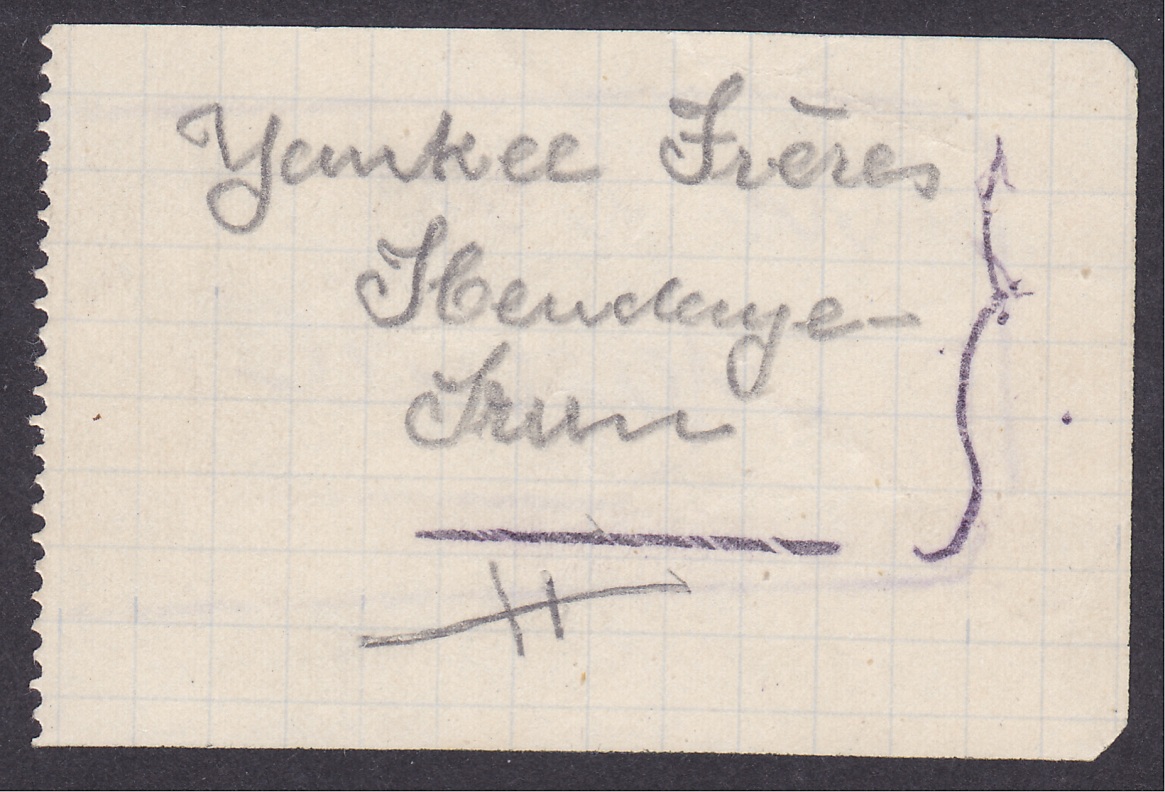 Yankee Frères
Hendaye-
Irun